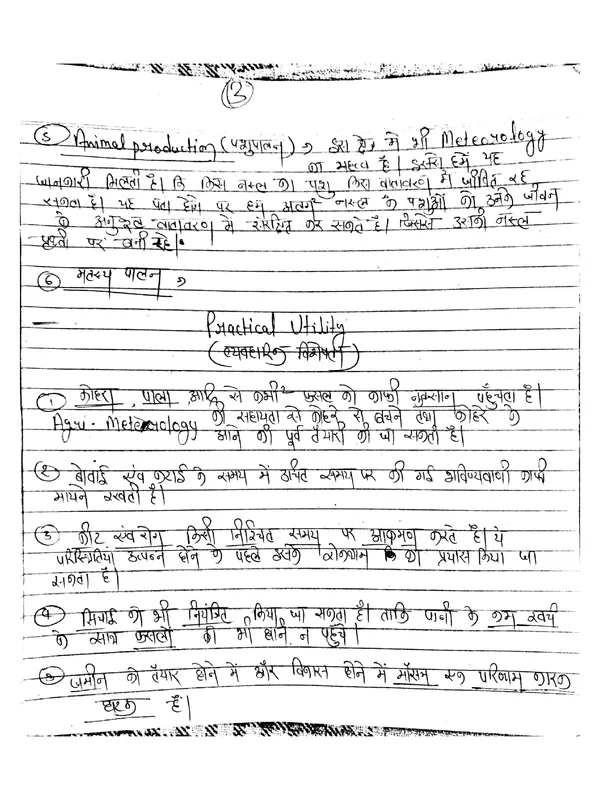 (3)
(5) Animal production (पशुपालन) → इस क्षेत्र मे भी Meteorology
का महत्व है। इससे हमें यह
जानकारी मिलती है। कि किस नस्ल का पशु किस वातावरण मे जीवित रह
सकता है। यह पता होने पर हम अलग नस्ल के पशुओं को उनके जीवन
के अनुकूल वातावरण मे संरक्षित कर सकते है। जिससे उसकी नस्ल
पृथ्वी पर बनी रहे।
(6) मतस्य पालन →
Practical Utility
(व्यवहारिक विशेषता)
(1) कोहरा, पाला आदि से कभी फसल को काफी नुक्सान पहुँचता है।
Agri-Meteorology की सहायता से कोहरे से बचने तथा कोहरे के
आने की पूर्व तैयारी की जा सकती है।
(2) बोवाई एंव कटाई के समय में उचित समय पर की गई भविष्यवाणी काफी
मायने रखती है।
(3) कीट एंव रोग किसी निश्चित समय पर आक्रमण करते है। ये
परिस्थितियां उत्पन्न होने के पहले उसके रोकथाम का प्रयास किया जा
सकता है।
(4) सिचाई को भी नियंत्रित किया जा सकता है। ताकि पानी के कम खर्च
के साथ फसलों को भी हानि न पहुँचे।
(5) जमीन को तैयार होने में और विकास होने में मौसम एक परिणाम कारक
घटक है।